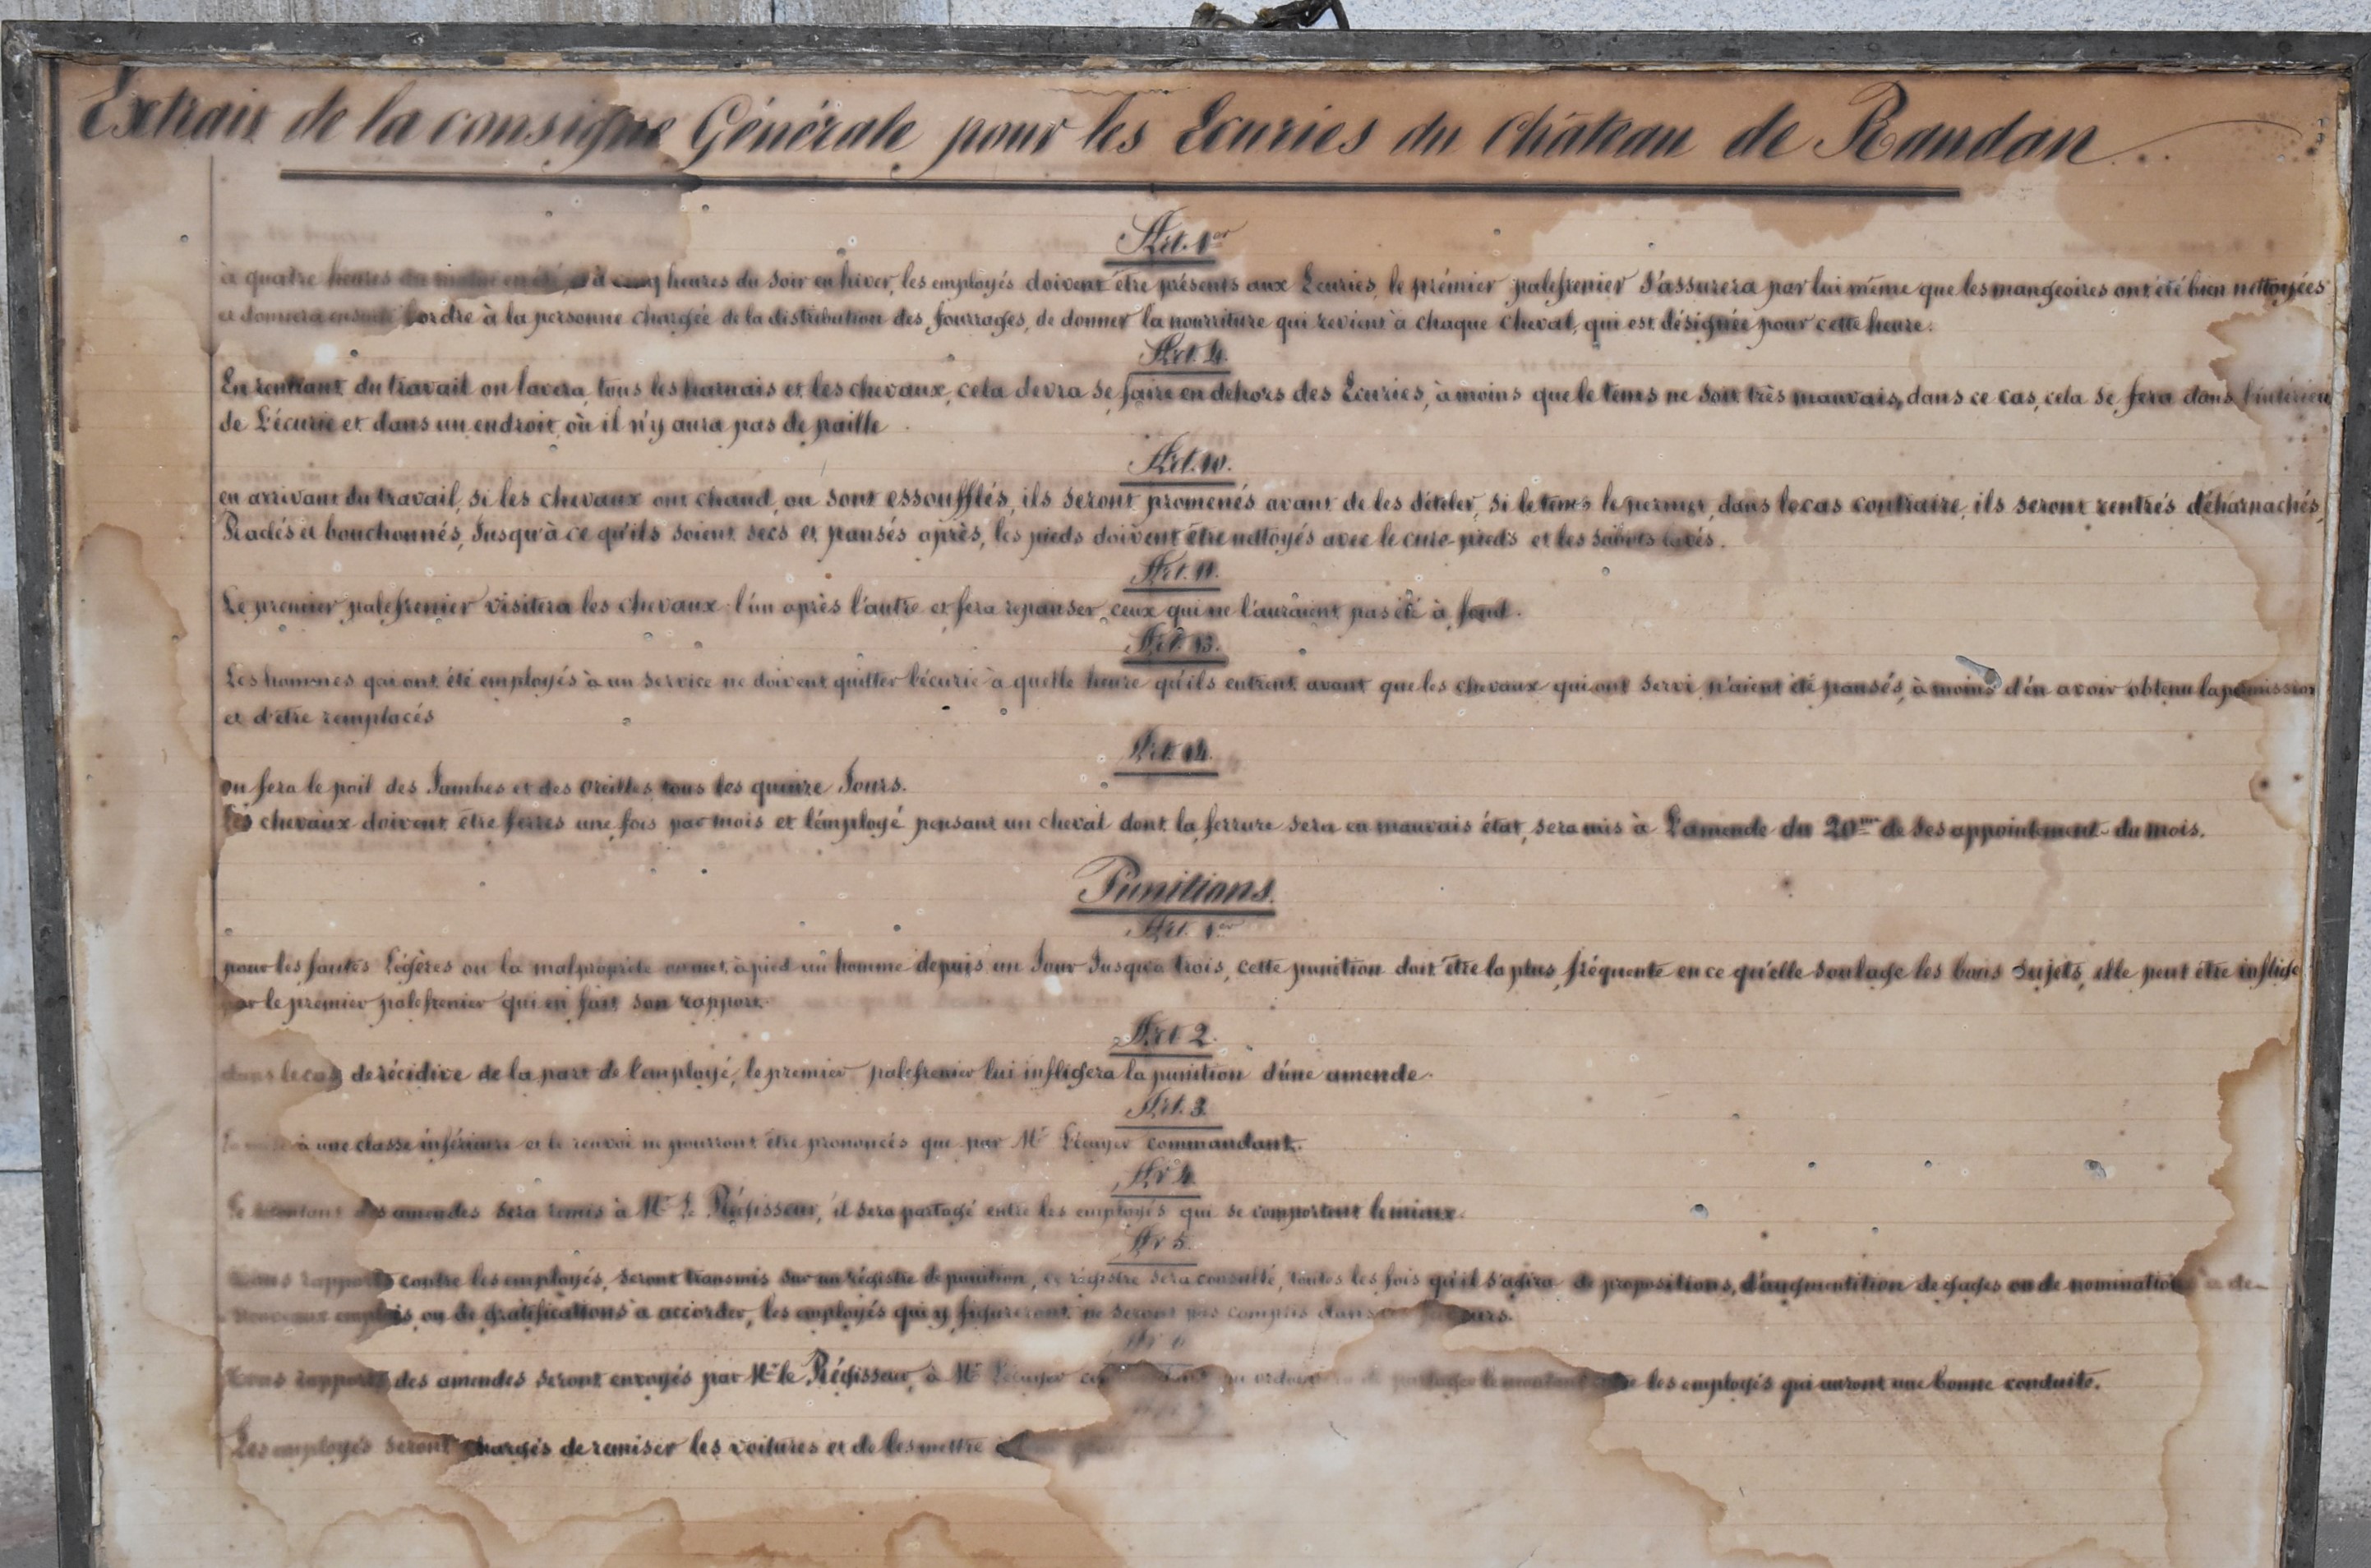 Extrait de la consigne Générale pour les Ecuries du Château de Randan
Art. 1er
à quatre heures du matin en été, et à cinq heures du soir en hiver, les employés doivent être présents aux Ecuries, le prémier palefrenier s'assurera par lui même que les mangeoires ont été bien nettoyées
et donnera ensuite l'ordre à la personne chargée de la distribution des fourrages, de donner la nourriture qui revient à chaque cheval, qui est désignée pour cette heure.
Art. 4.
En rentrant du travail on lavera tous les harnais et les chevaux, cela devra se faire en dehors des Ecuries, à moins que le tems ne soit très mauvais, dans ce cas, cela se fera dans l'intérieur
de l'écurie et dans un endroit où il n'y aura pas de paille
Art. 10.
en arrivant du travail, si les chevaux ont chaud, ou sont essoufflés, ils seront promenés avant de les dételer, si le tems le permet, dans le cas contraire, ils seront rentrés déharnachés,
Radés et bouchonnés, Jusqu'à ce qu'ils soient secs et pansés après, les pieds doivent être nettoyés avec le cure-pieds et les sabots lavés.
Art. 11.
Le premier palefrenier visitera les chevaux l'un après l'autre et fera repanser ceux qui ne l'auraient pas été à fond.
Art. 13.
Les hommes qui ont été employés à un service ne doivent quitter l'écurie à quelle heure qu'ils entrent avant que les chevaux qui ont servi n'aient été pansés, à moins d'en avoir obtenu la permission
et d'être remplacés
Art. 14.
on fera le poil des Jambes et des Oreilles tous les quinze Jours.
Les chevaux doivent être ferrés une fois par mois et l'employé pensant un cheval dont la ferrure sera en mauvais état, sera mis à L'amende du 20me de ses appointement du mois.
Punitions.
Art. 1er
pour les fautes Légères ou la malpropreté on met à pied un homme depuis un Jour Jusqu'à trois, cette punition doit être la plus fréquente en ce qu'elle soulage les bons sujets, elle peut être infligé
par le prémier palefrenier qui en fait son rapport.
Art 2.
dans le cas de récidive de la part de l'employé, le premier palefrenier lui infligera la punition d'une amende.
Art. 3.
la mise à une classe inférieure et le renvoi ne pourront être prononcés que par Mr L'écuyer commandant.
Ar 4
Le montant des amendes sera remis à Mr Le Régisseur, il sera partagé entre les employés qui se comportent le mieux.
Ar 5.
tous rapports contre les employés, seront transmis sur un régistre de punition, ce régistre sera consulté, toutes les fois qu'il s'agira de propositions, d'augmentition de gages ou de nomination à de
nouveaux emplois ou de gratifications à accorder, les employés qui y figureront ne seront pas compris dans
Ar 6
tous rapports des amendes seront envoyés par Mr le Régisseur, à Mr L'écuyer de partager le montant les employés qui auront une bonne conduite.
Art 7
Les employés seront chargés de remiser les voitures et de les mettre